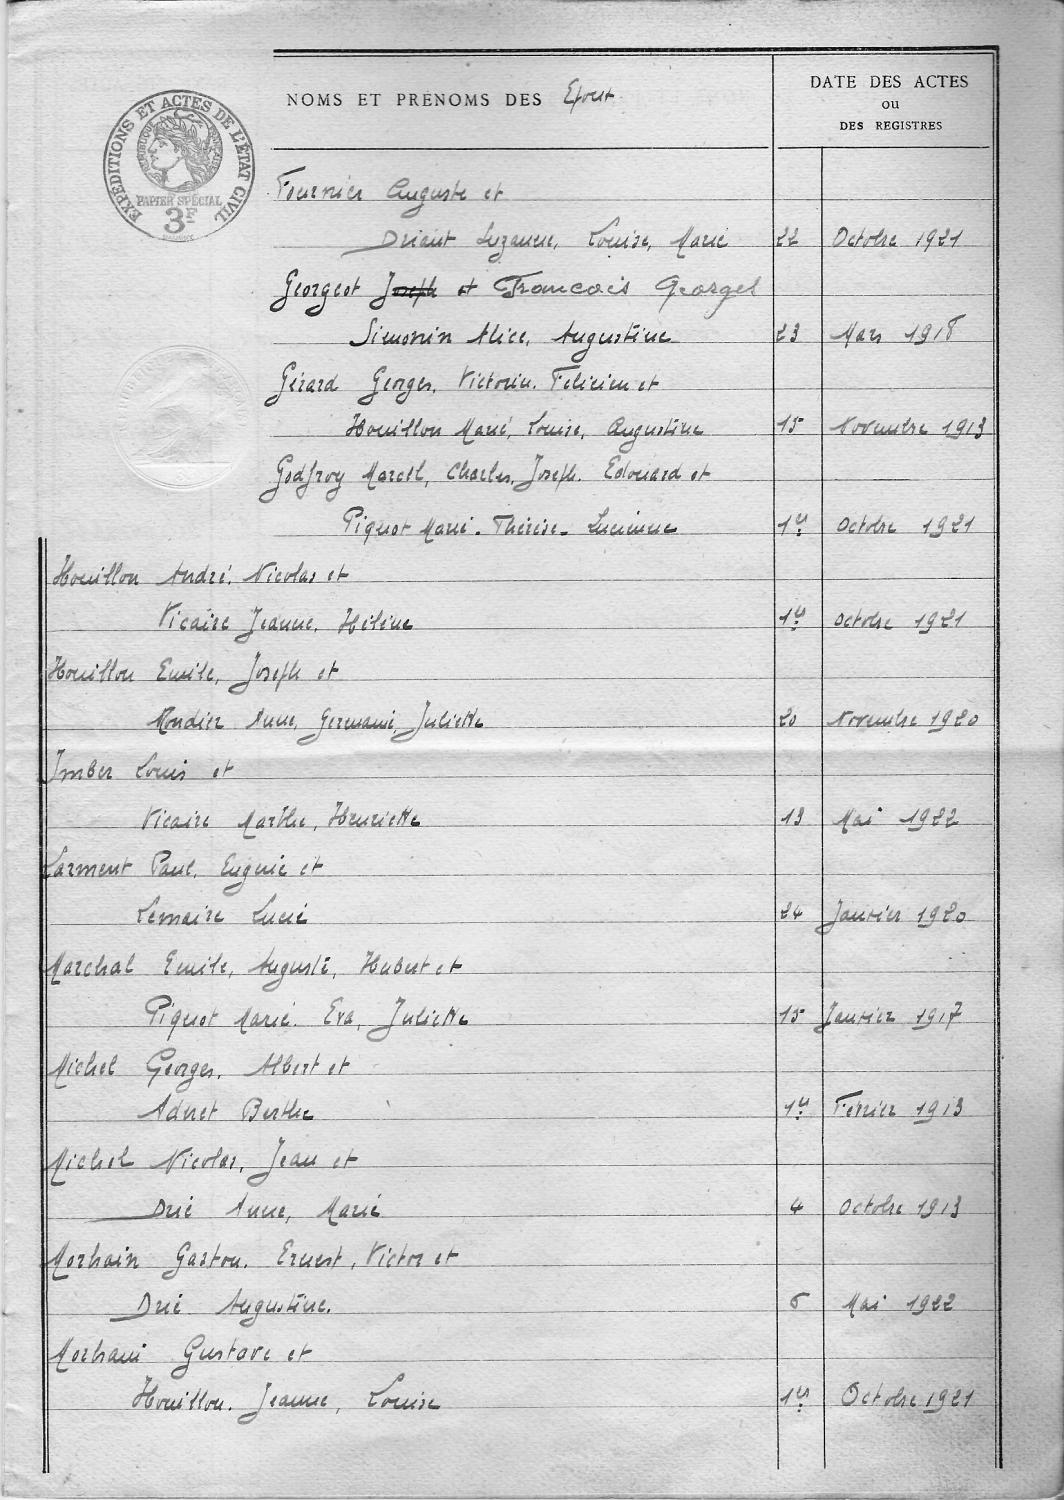 EXPÉDITIONS ET ACTES DE L'ÉTAT CIVIL
RÉPUBLIQUE FRANÇAISE
PAPIER SPÉCIAL
3F
NOMS ET PRÉNOMS DES Epoux
DATE DES ACTES
ou
DES REGISTRES
Fournier Auguste et
Driant Suzanne, Louise, Marie 22 Octobre 1921
Georgeot Joseph et Francois Georges
Simonin Alice, Augustine 23 Mars 1918
Gérard Georges, Victorin, Félicien et
Houillon Marie, Louise, Augustine 15 Novembre 1913
Godfroy Marcel, Charles, Joseph, Edouard et
Piquot Marie-Thérèse-Lucienne 1er Octobre 1921
Houillon André, Nicolas et
Vicaire Jeanne, Hélène 1er Octobre 1921
Houillon Emile, Joseph et
Mondier Anne, Germaine, Juliette 20 Novembre 1920
Imber Louis et
Vicaire Marthe, Henriette 13 Mai 1922
Larment Paul, Eugène et
Lemaire Lucie 24 Janvier 1920
Marchal Emile, Auguste, Hubert et
Piquot Marie, Eva, Juliette 15 Janvier 1917
Michel Georges, Albert et
Adnet Berthe 1er Février 1913
Michel Nicolas, Jean et
Drié Anne, Marie 4 Octobre 1913
Morhain Gaston, Ernest, Victor et
Drié Augustine. 6 Mai 1922
Morhain Gustave et
Houillon, Jeanne, Louise 1er Octobre 1921